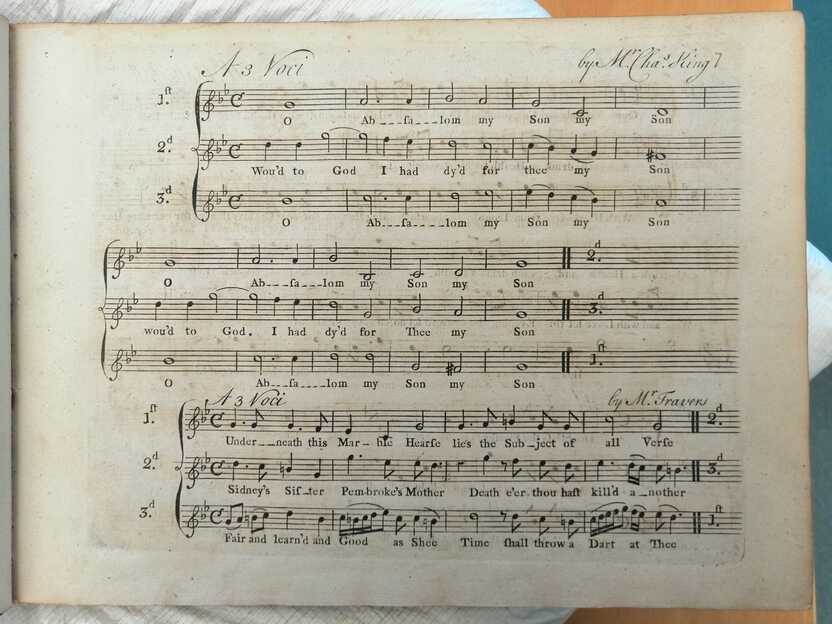 A 3 Voci by Mr. Chas. King 7
1.st
O Ab___ſa___lom my Son my Son
2.d
Wou'd to God I had dy'd for thee my Son
3.d
O Ab___ſa___lom my Son my Son
O Ab___ſa___lom my Son my Son 2.d
wou'd to God. I had dy'd for Thee my Son 3.d
O Ab___ſa___lom my Son my Son 1.st
A 3 Voci by Mr. Travers
1.st 2.d
Under__neath this Mar__ble Hearſe lie's the Sub_ject of all Verſe
2.d 3.d
Sidney's Siſ_ter Pembroke's Mother Death e'er thou haſt kill'd a_nother
3.d 1.st
Fair and learn'd and Good as Shee Time ſhall throw a Dart at Thee